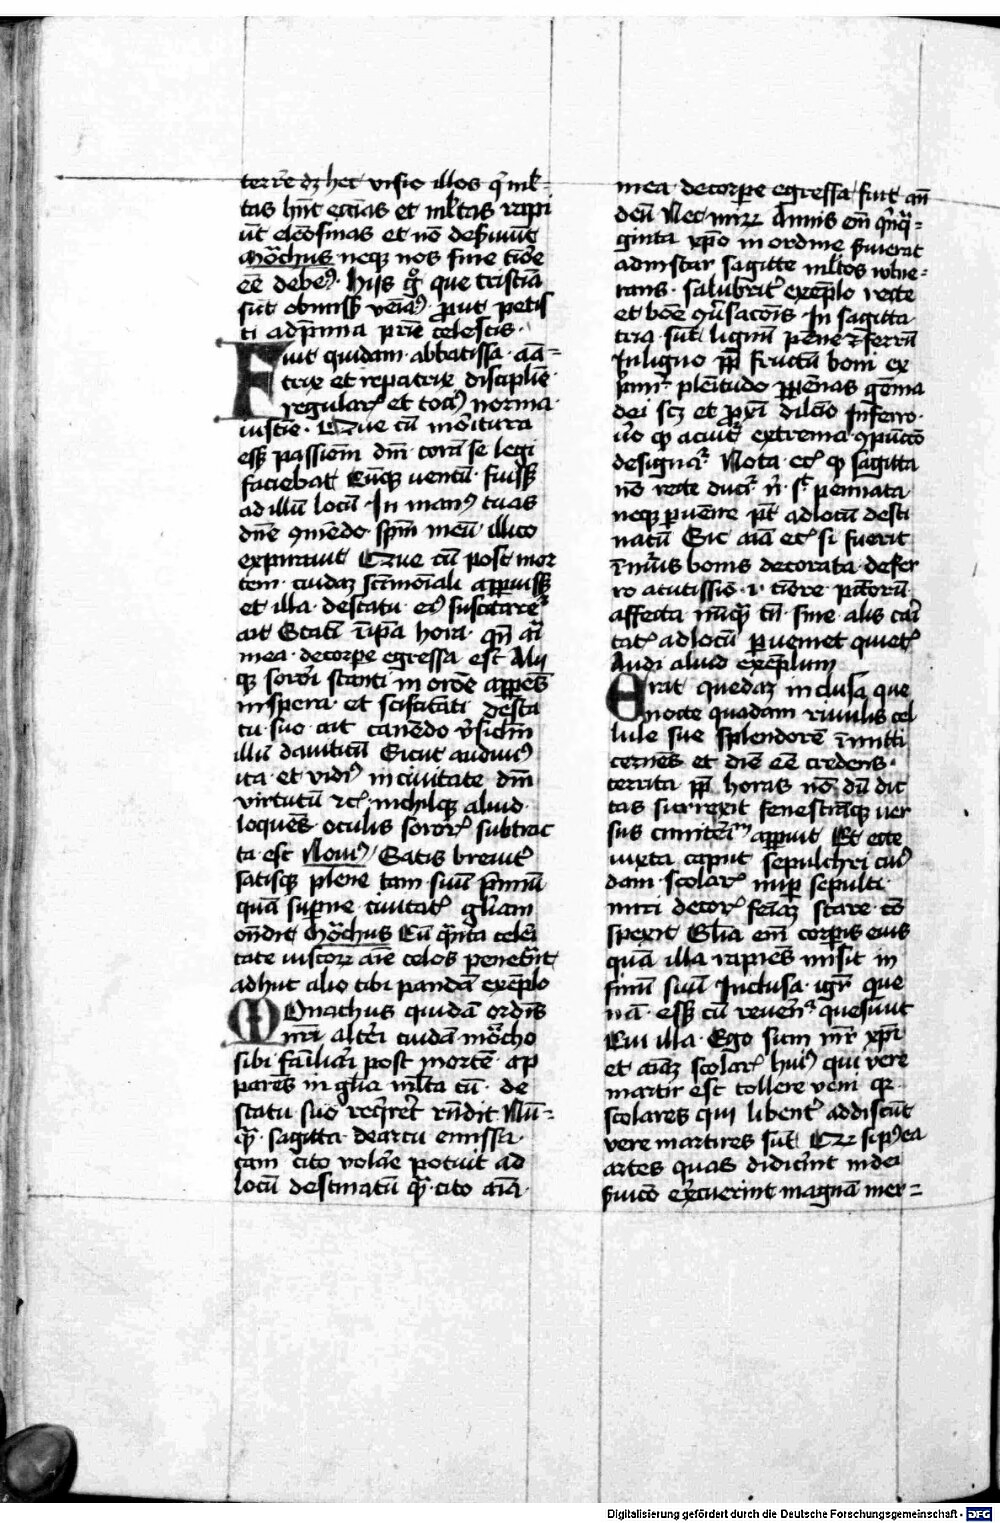 terrē dꝫ hec visio illos qͥ ml̄
tas hn̄t ecc̄ias et ml̄tas rapi
ūt elēosinas et nō deẜuiūt
Mōchus neqꝫ nos sine tiōre
eē debem⁹ hijs gͦ que tristiā
sūt obmissꝭ veniam⁹ ꝓut petis
ti ad p̄mia pr̄ie celestis
Fuit quidam abbatissa aā
trix et repatrix discipline
regularꝭ et toci⁹ norma
iusticie Que cū moritura
esset passiōem dn̄i corā se legi
faciebat Cūqꝫ uentū fuissꝫ
ad illū locū In man⁹ tuas
dn̄e ꝯmēdo spm̄ meū illico
expirauit Que cū post mor
tem cuidaꝫ sc̄imōiali apparuissꝫ
et illa de statu ei⁹ suscitaretͬ
ait Statī ī ip̄a hora qn̄ aīa
mea de corpe egressa est Alii
qꝫ sorori stanti in orōe apparēs
insꝑata et sciscitāti de sta
tu suo ait canēdo v̓sicl̄m
illū dauiticū Sicut audiuim⁹
ita et vidim⁹ in ciuitate dn̄i
virtutū ⁊cͣ nichilqꝫ aliud
loquēs oculis sororꝭ subtrac
ta est Nouic⁹ Satis breuit̓
satisqꝫ plene tam suū p̄miū
quā suꝑne ciuitatꝭ gl̄iam
on̄dit Mōchus Cū qͣnta celeri
tate iustoꝝ aīe celos penetrēt
adhuc alio tibi pandā exēplo
MOnachus quidā ordīs
nr̄i alteri cuidā mōcho
sibi familiari post mortē ap
parēs in gl̄ia ml̄ta cū de
statu suo req̄reret rn̄dit Nū
qͣ sagitta de arcu emissa
tam cito volare potuit ad
locū destinatū qͣ cito aīa
mea de corpe egressa fuit an̄
deū Nec miꝝ Annis em̄ qͥnqͣ
ginta xp̄o in ordine ẜuierat
ad instar sagitte ml̄tos vulne
rans salubrit̓ exēplo recte
et bōe ꝯu̓sacōis In sagitta
tria sūt lignū pēne ⁊ ferrū
In ligno ꝓp̄t fructū boni ex
p̄mit̄ plenitudo ꝑ pēnas gemīa
dei scꝫ et ꝓxi dilc̄io In ferro
ūo qͦ acuitͬ extrema ꝯpūctō
designatͬ Nota ecͣ qͦ sagitta
nō recte ducitͬ nͥ sit pennata
neqꝫ ꝑuenire pt̄ ad locū desti
natū Sic aīa etͥ si fuerit
ī m̄tis bonis decorata de fer
ro acutissīo .i. tiōre pctōrū
affecta nūqͣ tn̄ sine alis cari
tatꝭ ad locū ꝑueniet quietꝭ
Audi aliud exēplum
ERat quedaꝫ inclusa que
nocte quadam rimulis cel
lule sue splendorē īmitti
cernēs et diē eē credens
territa ꝓp̄t horas nō dū dic
tas surrexit fenestrāqꝫ ver
sus cimiteriū aperuit Et ecce
iuxta caput sepulchri cui⁹
dam scolarꝭ nup̄ sepulti
miri decorꝭ feīaꝫ stare cō
spexit Gl̄ia em̄ corpis eius
quā illa rapiēs misit in
sinū suū Inclusa igr̄ que
nā essꝫ cū reuerēꝭ quesiuit
Cui illa Ego sum mr̄ xp̄i
et aīaꝫ scolarꝭ hui⁹ qui vere
martir est tollere veni qꝛ
scolares qui libent̓ addiscūt
vere martires sūt Qꝛ si p⁹ea
artes quas didicerint in dei
ẜuicō exercuerint magnā mer